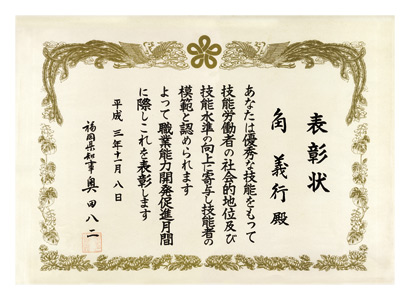 表彰状
角 義行 殿
あなたは優秀な技能をもって
技能労働者の社会的地位及び
技能水準の向上に寄与し技能者の
模範と認められます
よって職業能力開発促進月間
に際しこれを表彰します
平成 三年十一月 八日
福岡県知事 奥田八二